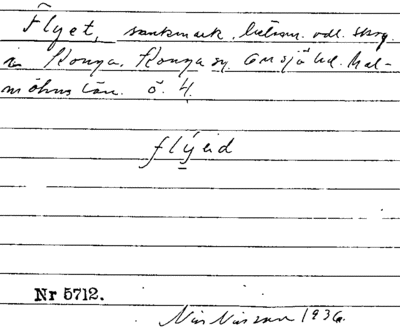 Flyet, sankmark, betesm. odl. skog.
i Konga, Konga sn. Onsjö hd. Mal-
möhus län. ö. 4.
flýeid
Nr 5712.
Nils Nilsson 1936.